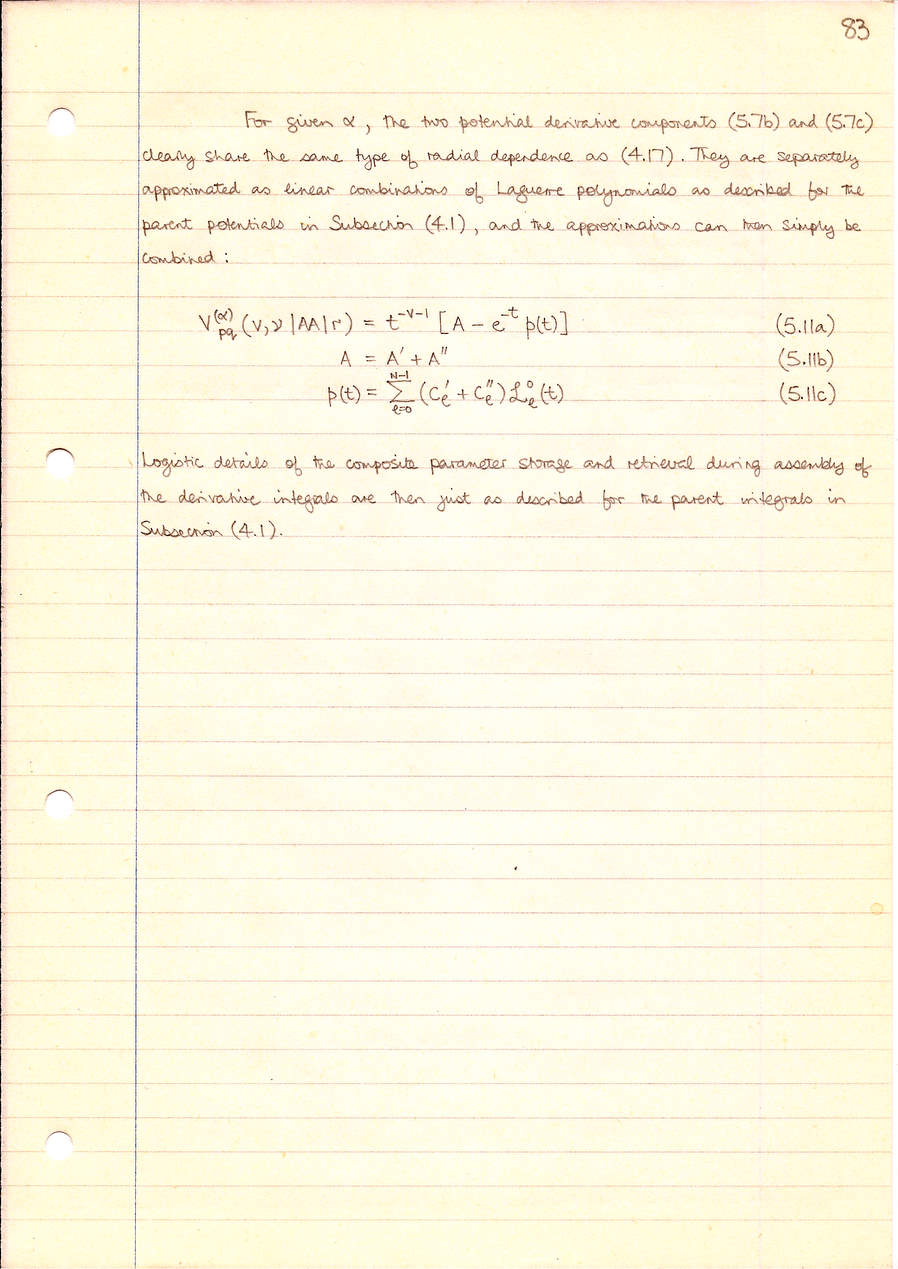 83
For given α, the two potential derivative components (5.7b) and (5.7c)
clearly share the same type of radial dependence as (4.17). They are separately
approximated as linear combinations of Laguerre polynomials as described for the
parent potentials in Subsection (4.1), and the approximations can then simply be
combined :
V_pq^(α) (v,ν |AA| r) = t^-v-1 [A - e^-t p(t)] (5.11a)
A = A′ + A″ (5.11b)
p(t) = Σ_{ℓ=0}^{N-1} (C_ℓ′ + C_ℓ″) ℒ_ℓ^0 (t) (5.11c)
Logistic details of the composite parameter storage and retrieval during assembly of
the derivative integrals are then just as described for the parent integrals in
Subsection (4.1).